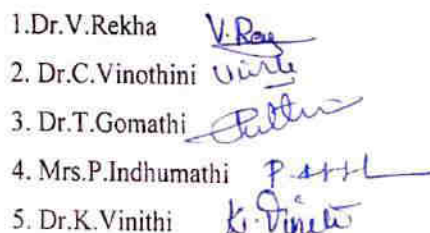 1.Dr.V.Rekha V.Rey
2. Dr.C.Vinothini
3. Dr.T.Gomathi
4. Mrs.P.Indhumathi P.
5. Dr.K.Vinithi K.Vineti